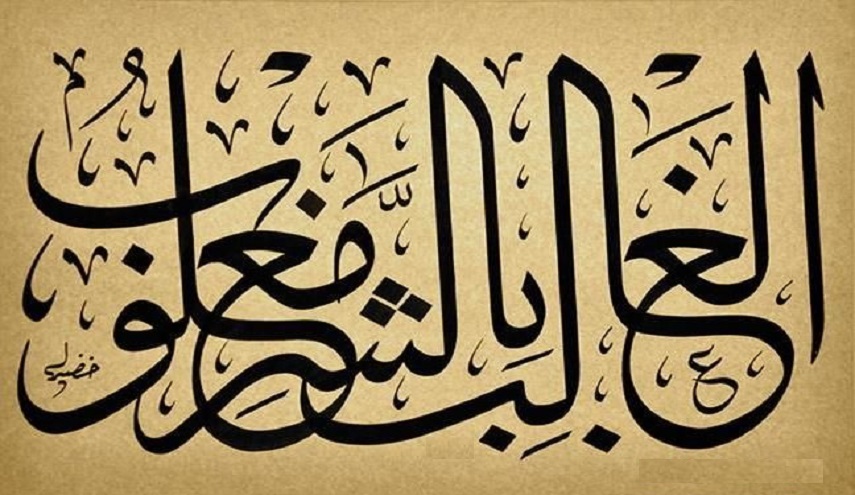 الغالب بالشر مغلوب
خضير